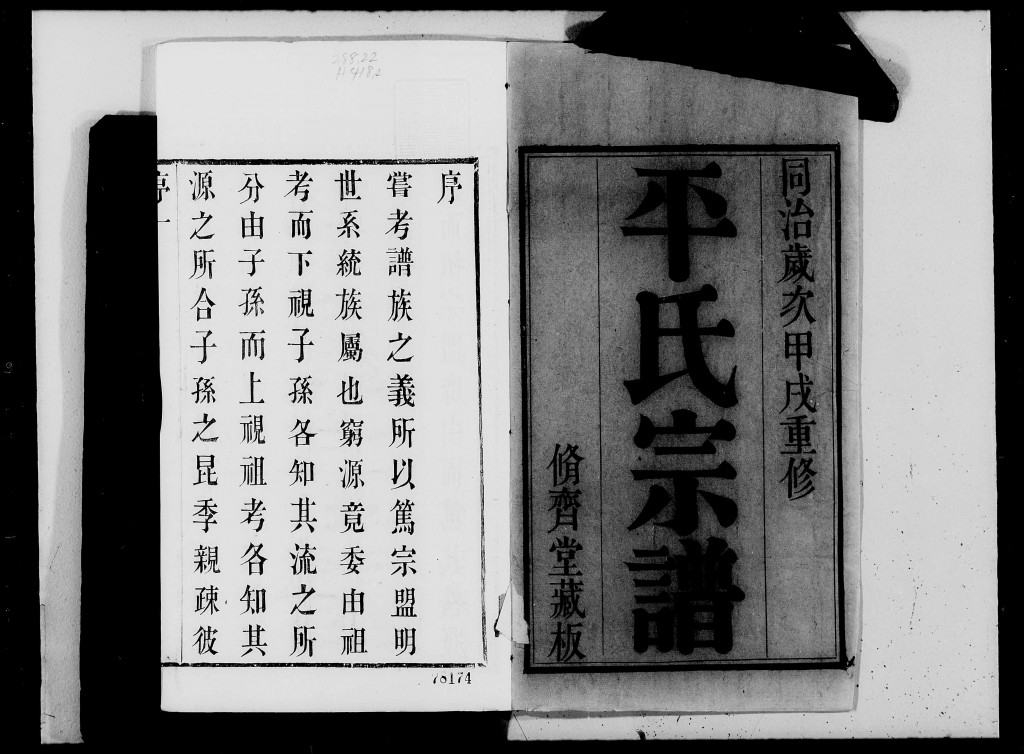 同治歲次甲戌重修
平氏宗譜
脩齊堂藏板
序
嘗考譜族之義所以篤宗盟明
世系統族屬也窮源竟委由祖
考而下視子孫各知其流之所
分由子孫而上視祖考各知其
源之所合子孫之昆季親疎彼
序一
78174